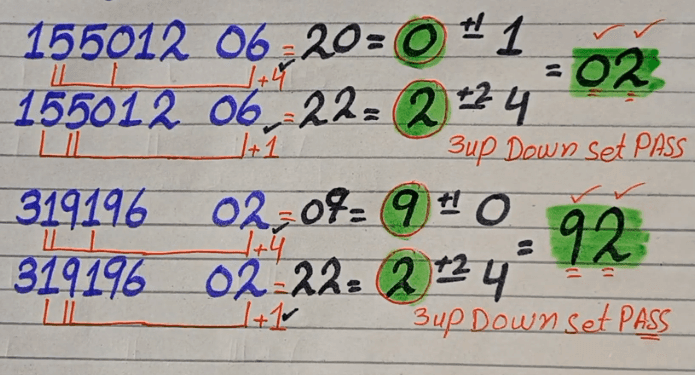 155012 06 = 20 = 0 ±1 1
+4
= 02
155012 06 = 22 = 2 ±2 4
+1
3up Down set PASS
319196 02 = 09 = 9 ±1 0
+4
= 92
319196 02 = 22 = 2 ±2 4
+1
3up Down set PASS